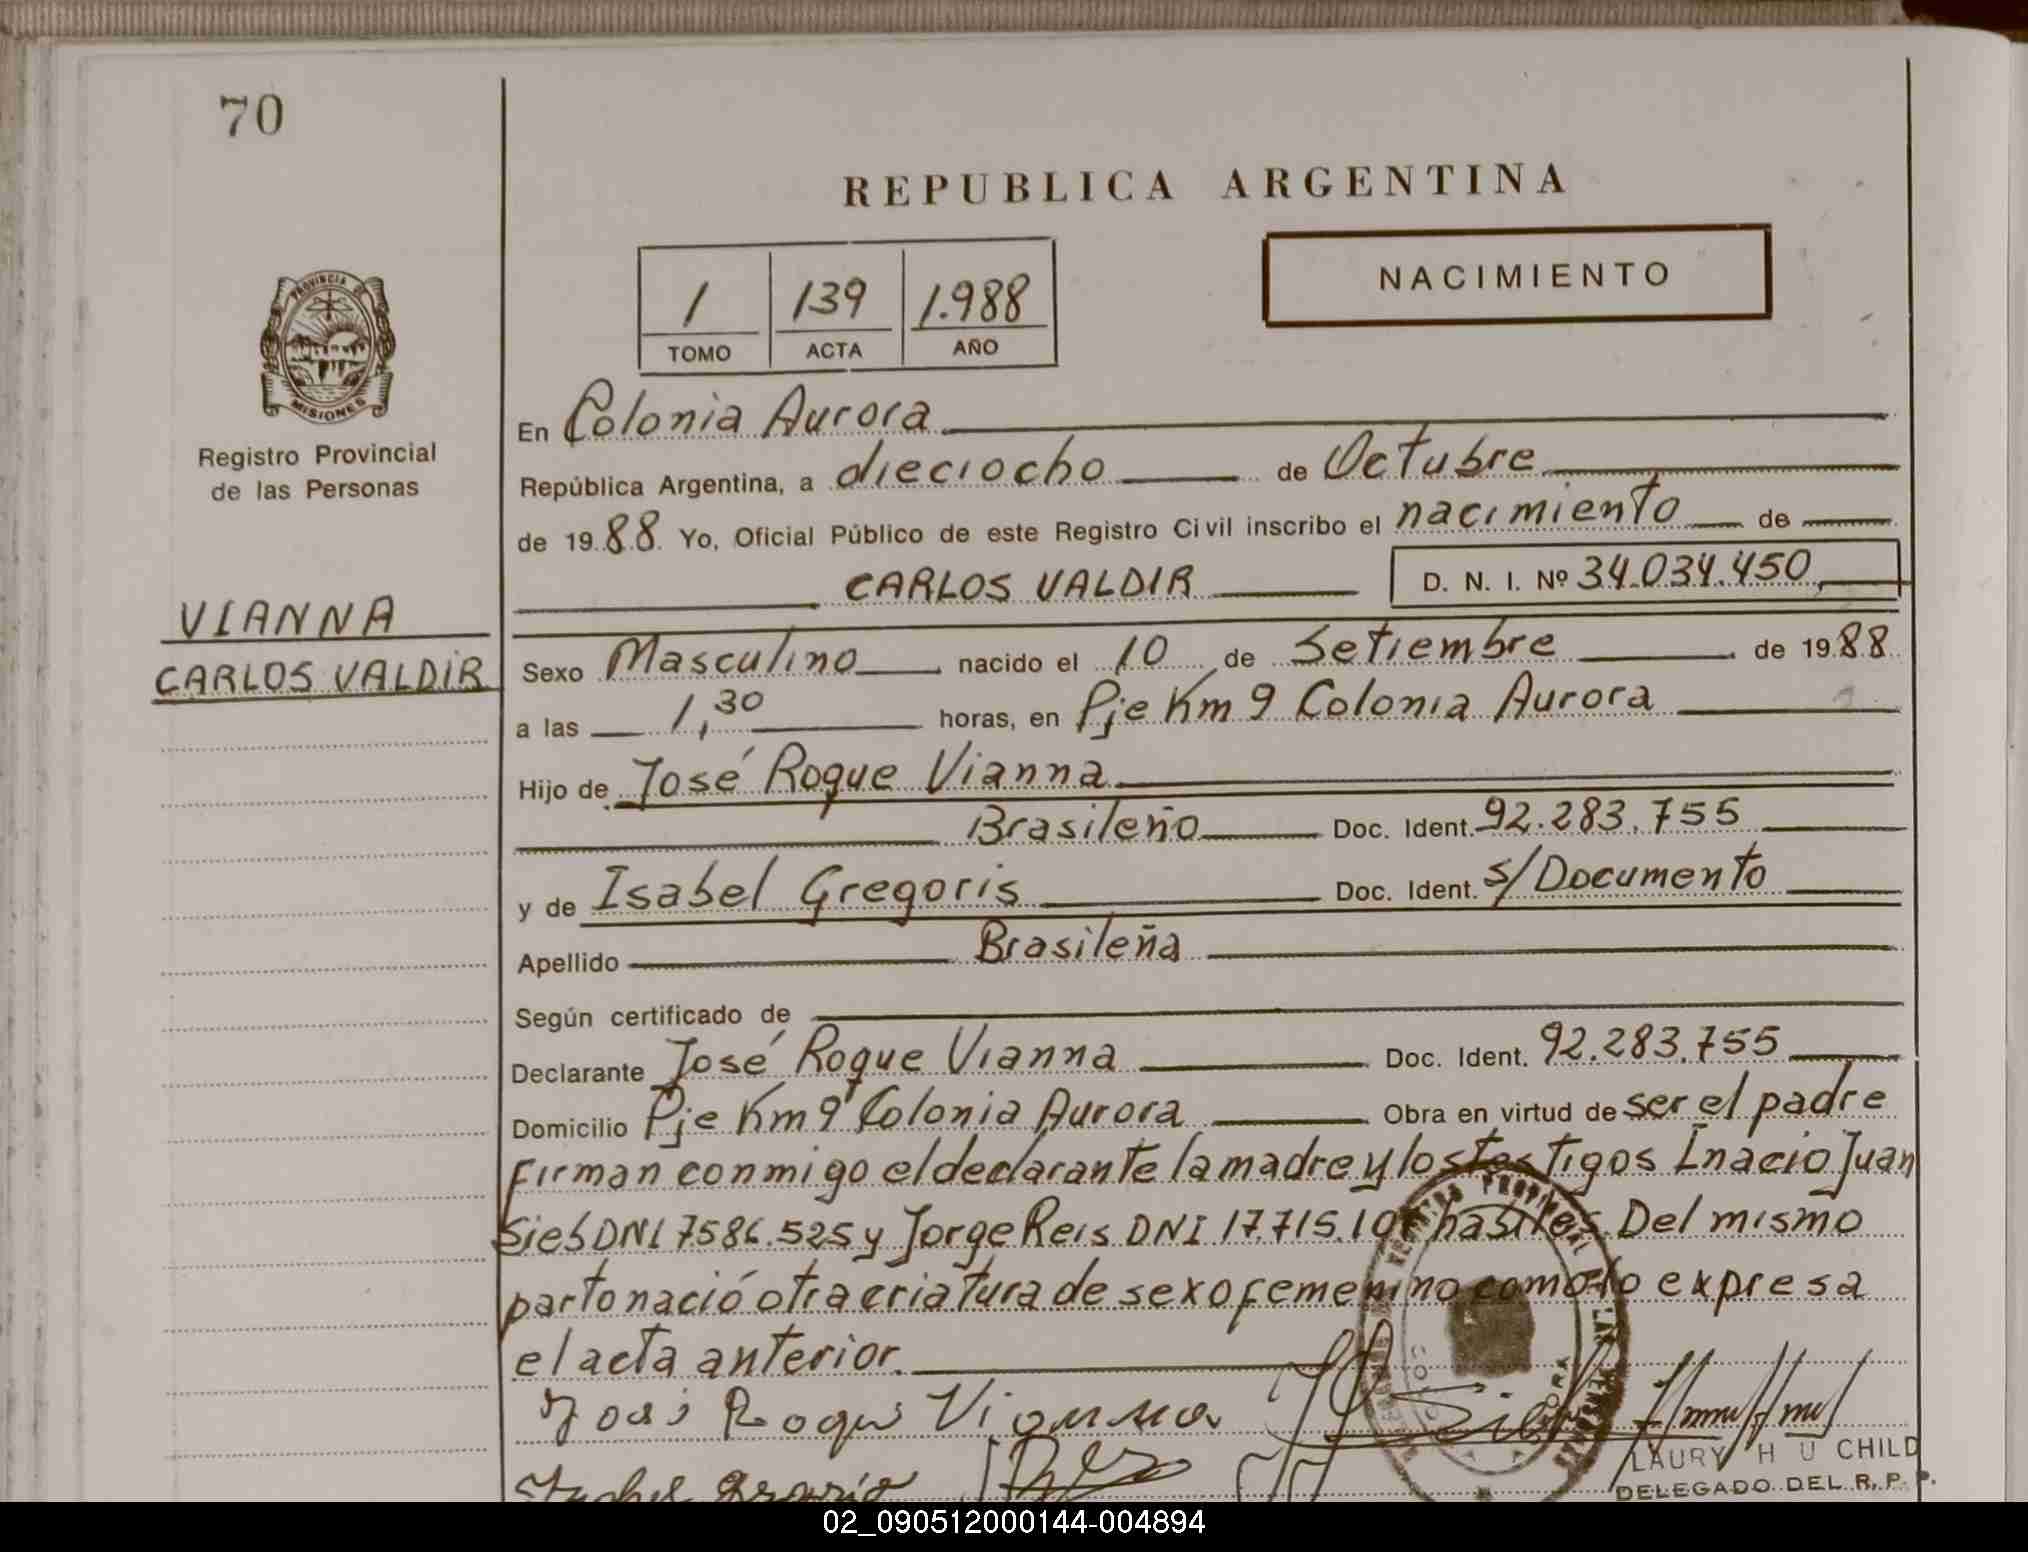 70
REPUBLICA ARGENTINA
1 139 1.988
TOMO ACTA AÑO
NACIMIENTO
PROVINCIA D
MISIONES
Registro Provincial
de las Personas
VIANNA
CARLOS VALDIR
En Colonia Aurora
República Argentina, a dieciocho de Octubre
de 1988 Yo, Oficial Público de este Registro Civil inscribo el nacimiento de
CARLOS VALDIR D. N. I. Nº 34.034.450
Sexo Masculino nacido el 10 de Setiembre de 1988
a las 1,30 horas, en Pje Km 9 Colonia Aurora
Hijo de José Roque Vianna
Brasileño Doc. Ident. 92.283.755
y de Isabel Gregoris Doc. Ident. s/Documento
Apellido Brasileña
Según certificado de
Declarante José Roque Vianna Doc. Ident. 92.283.755
Domicilio Pje Km 9 Colonia Aurora Obra en virtud de ser el padre
Firman conmigo el declarante la madre y los testigos Inacio Juan
Sieb DNI 7586.525 y Jorge Reis DNI 17.715.10 habiles. Del mismo
parto nació otra criatura de sexo femenino como lo expresa
el acta anterior.
José Roque Vianna
LAURY H U CHILD
DELEGADO DEL R. P. P.
02_090512000144-004894